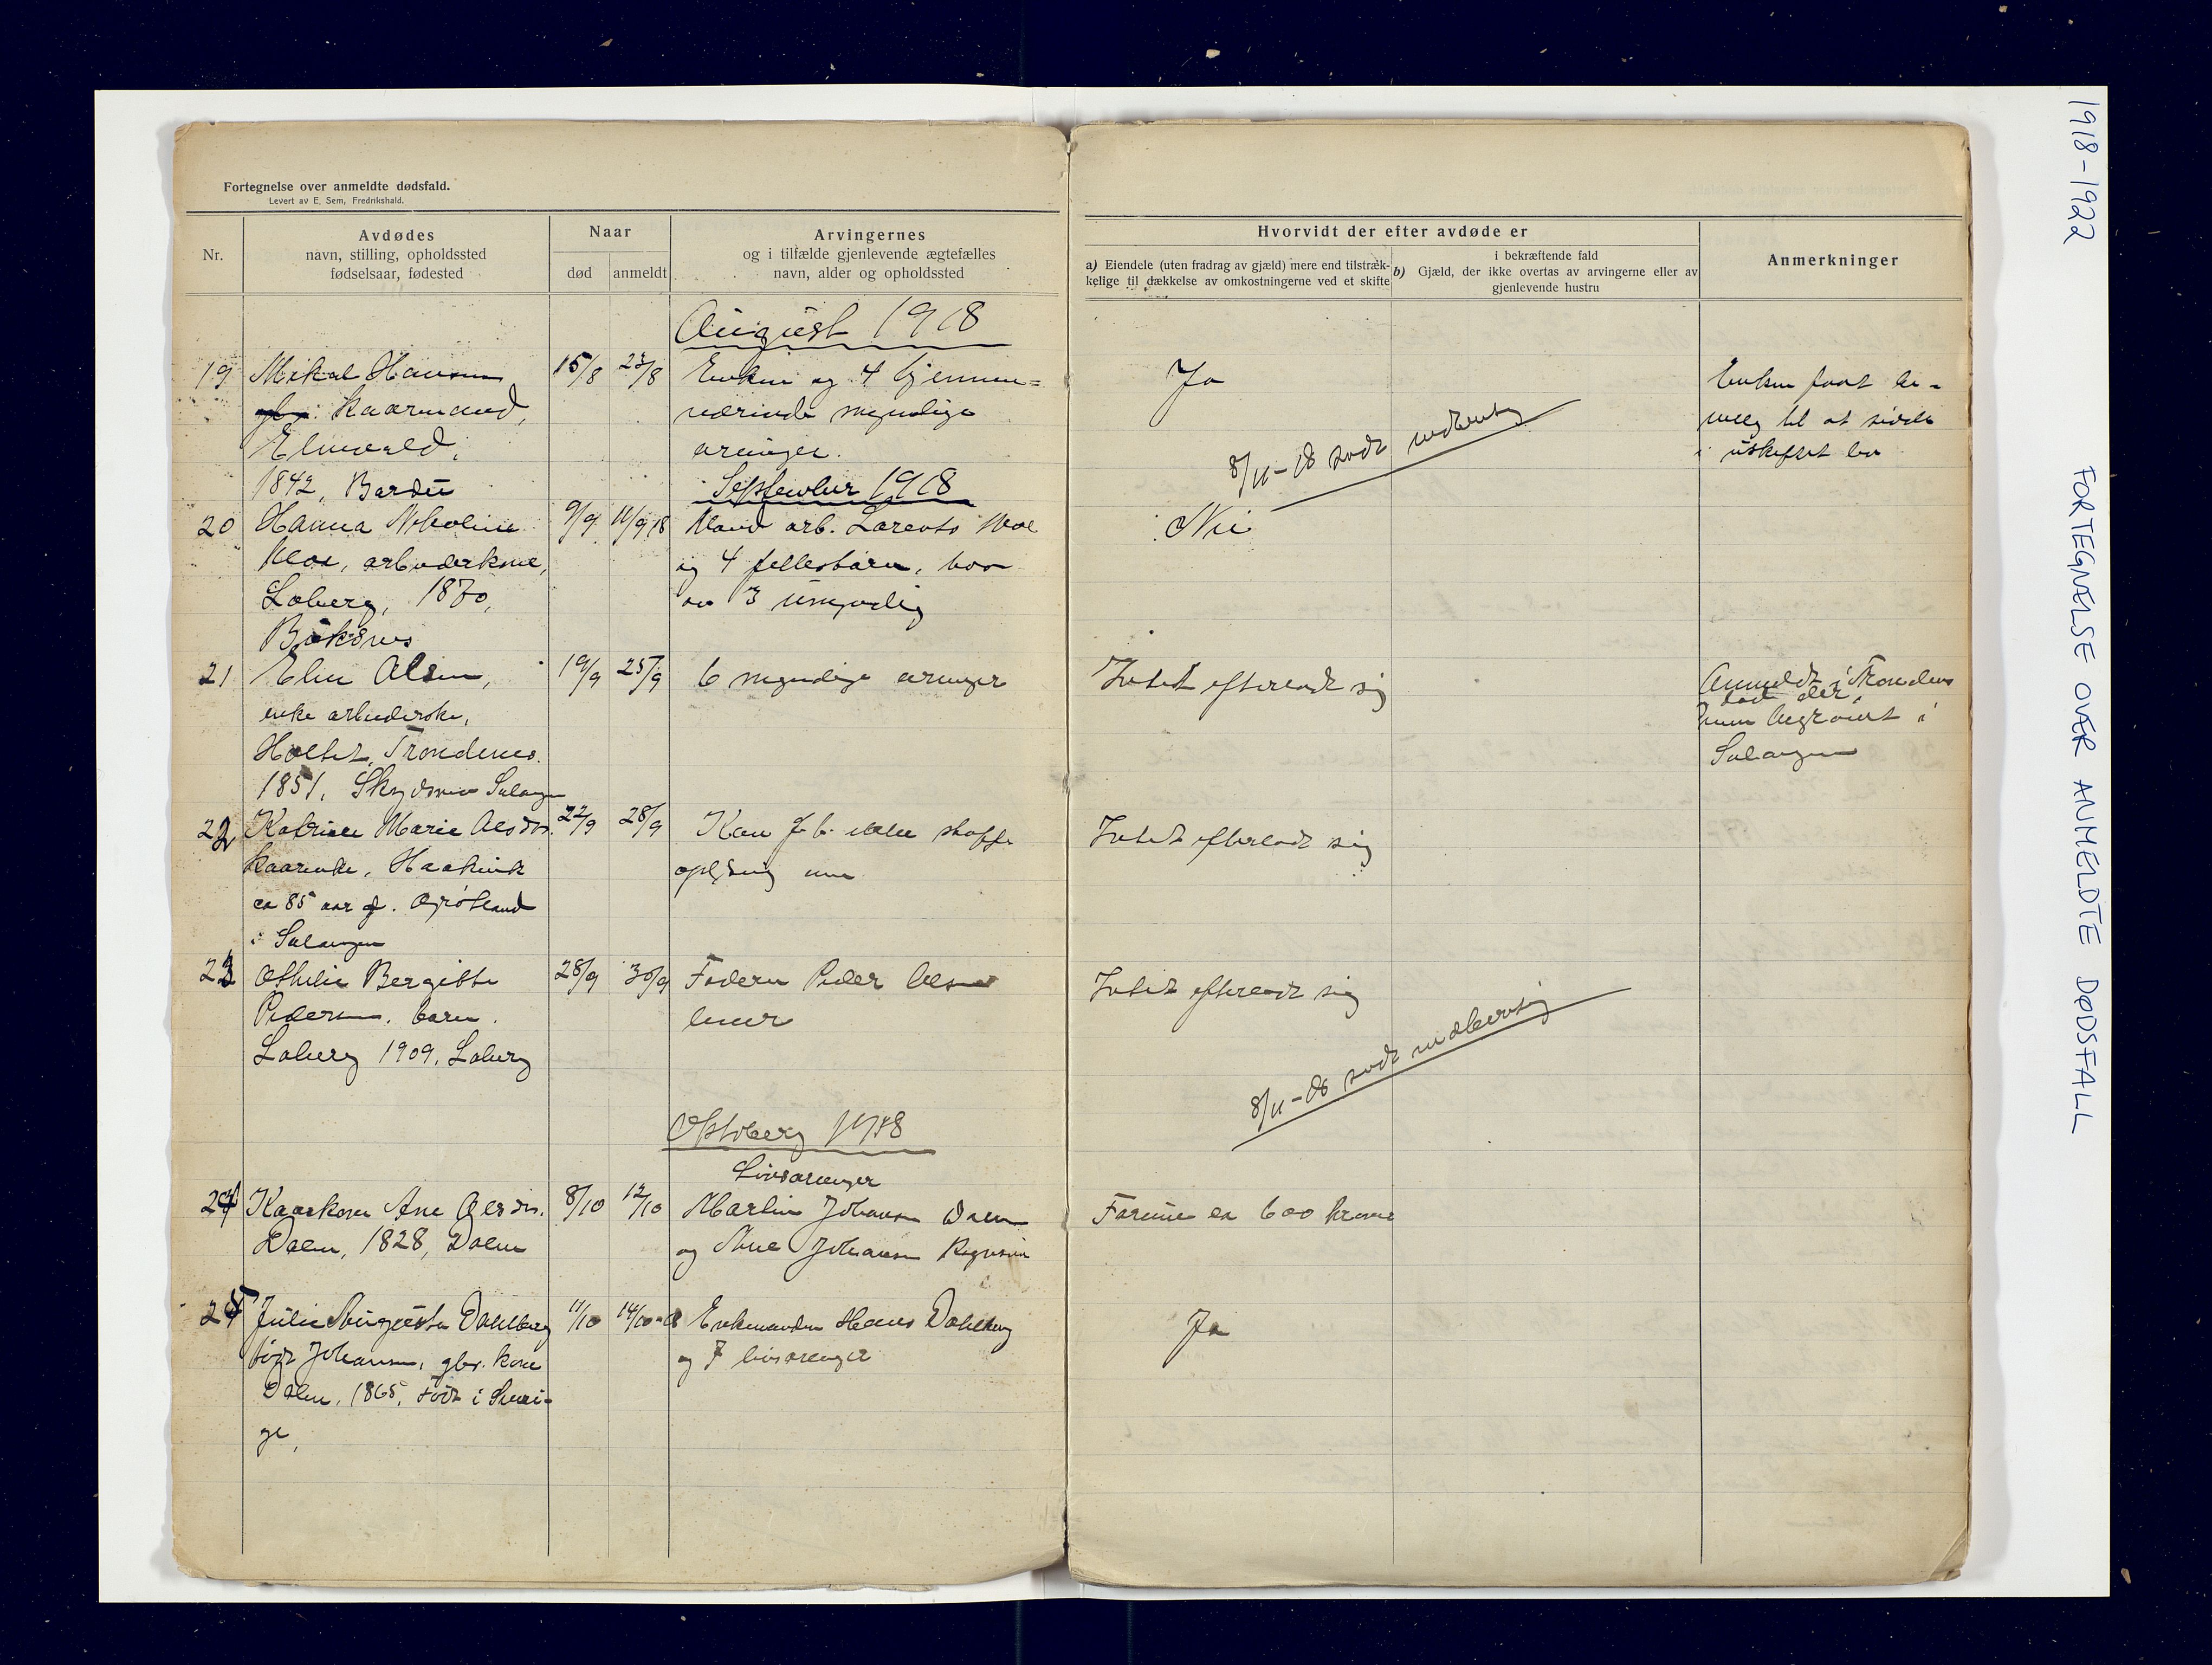 Fortegnelse over anmeldte dødsfald.
Levert av E. Sem, Fredrikshald.
Nr.
Avdødes
navn, stilling, opholdssted
fødselsaar, fødested
Naar
død
anmeldt
Arvingernes
og i tilfælde gjenlevende ægtefælles
navn, alder og opholdssted
Hvorvidt der efter avdøde er
a) Eiendele (uten fradrag av gjæld) mere end tilstræk-
kelige til dækkelse av omkostningerne ved et skifte
i bekræftende fald
b) Gjæld, der ikke overtas av arvingerne eller av
gjenlevende hustru
Anmerkninger
August 1918
19 Mikal Hansen 15/8 23/8 Enken og 4 hjemme= Ja Enken faat be-
kaarmand, værende myndige villg til at sidde
Elvevold, arvinger. i uskiftet bo
1842, Bardu
8/11-18 sendt indberetng
September 1918
20 Hanna Nikoline 9/9 11/9 18 Mand arb. Lorents Moe Nei
Moe, arbeiderkone, og 4 fellesbarn, hvor
Loberg, 1870, av 3 umyndig
Buksnes
21 Elen Olsen, 19/9 25/9 6 myndige arvinger Intet efterladt sig Anmeldt i Trondenes
enke arbeiderske, død der,
Holtet, Trondenes. men begravet i
1851, Salangen Salangen
22 Katrine Marie Olsdtr. 22/9 28/9 Kan f. t. ikke skaffe Intet efterladt sig
kaarenke, Haakvik oplysning om
ca 85 aar g. Grøtland
i Salangen
23 Othelie Bergitte 28/9 30/9 Faderen Peder Olsen Intet efterladt sig
Pedersen, barn. lever
Loberg 1909, Loberg
8/11-18 sendt indberetnig
Oktober 1918
Livsarvinger
24 Kaarkone Ane Olsdtr. 8/10 12/10 Martin Johansen Dalen Formue ca 600 kroner
Dalen, 1828, Dalen og Ane Johansen
25 Julie Augusta Dahlberg 11/10 14/10-18 Enkemanden Hans Dahlberg Ja
født Johansen, gbr. kone og 7 livsarvinger
Dalen, 1865, født i Sveri-
ge,
1918-1922 FORTEGNELSE OVER ANMELDTE DØDSFALL